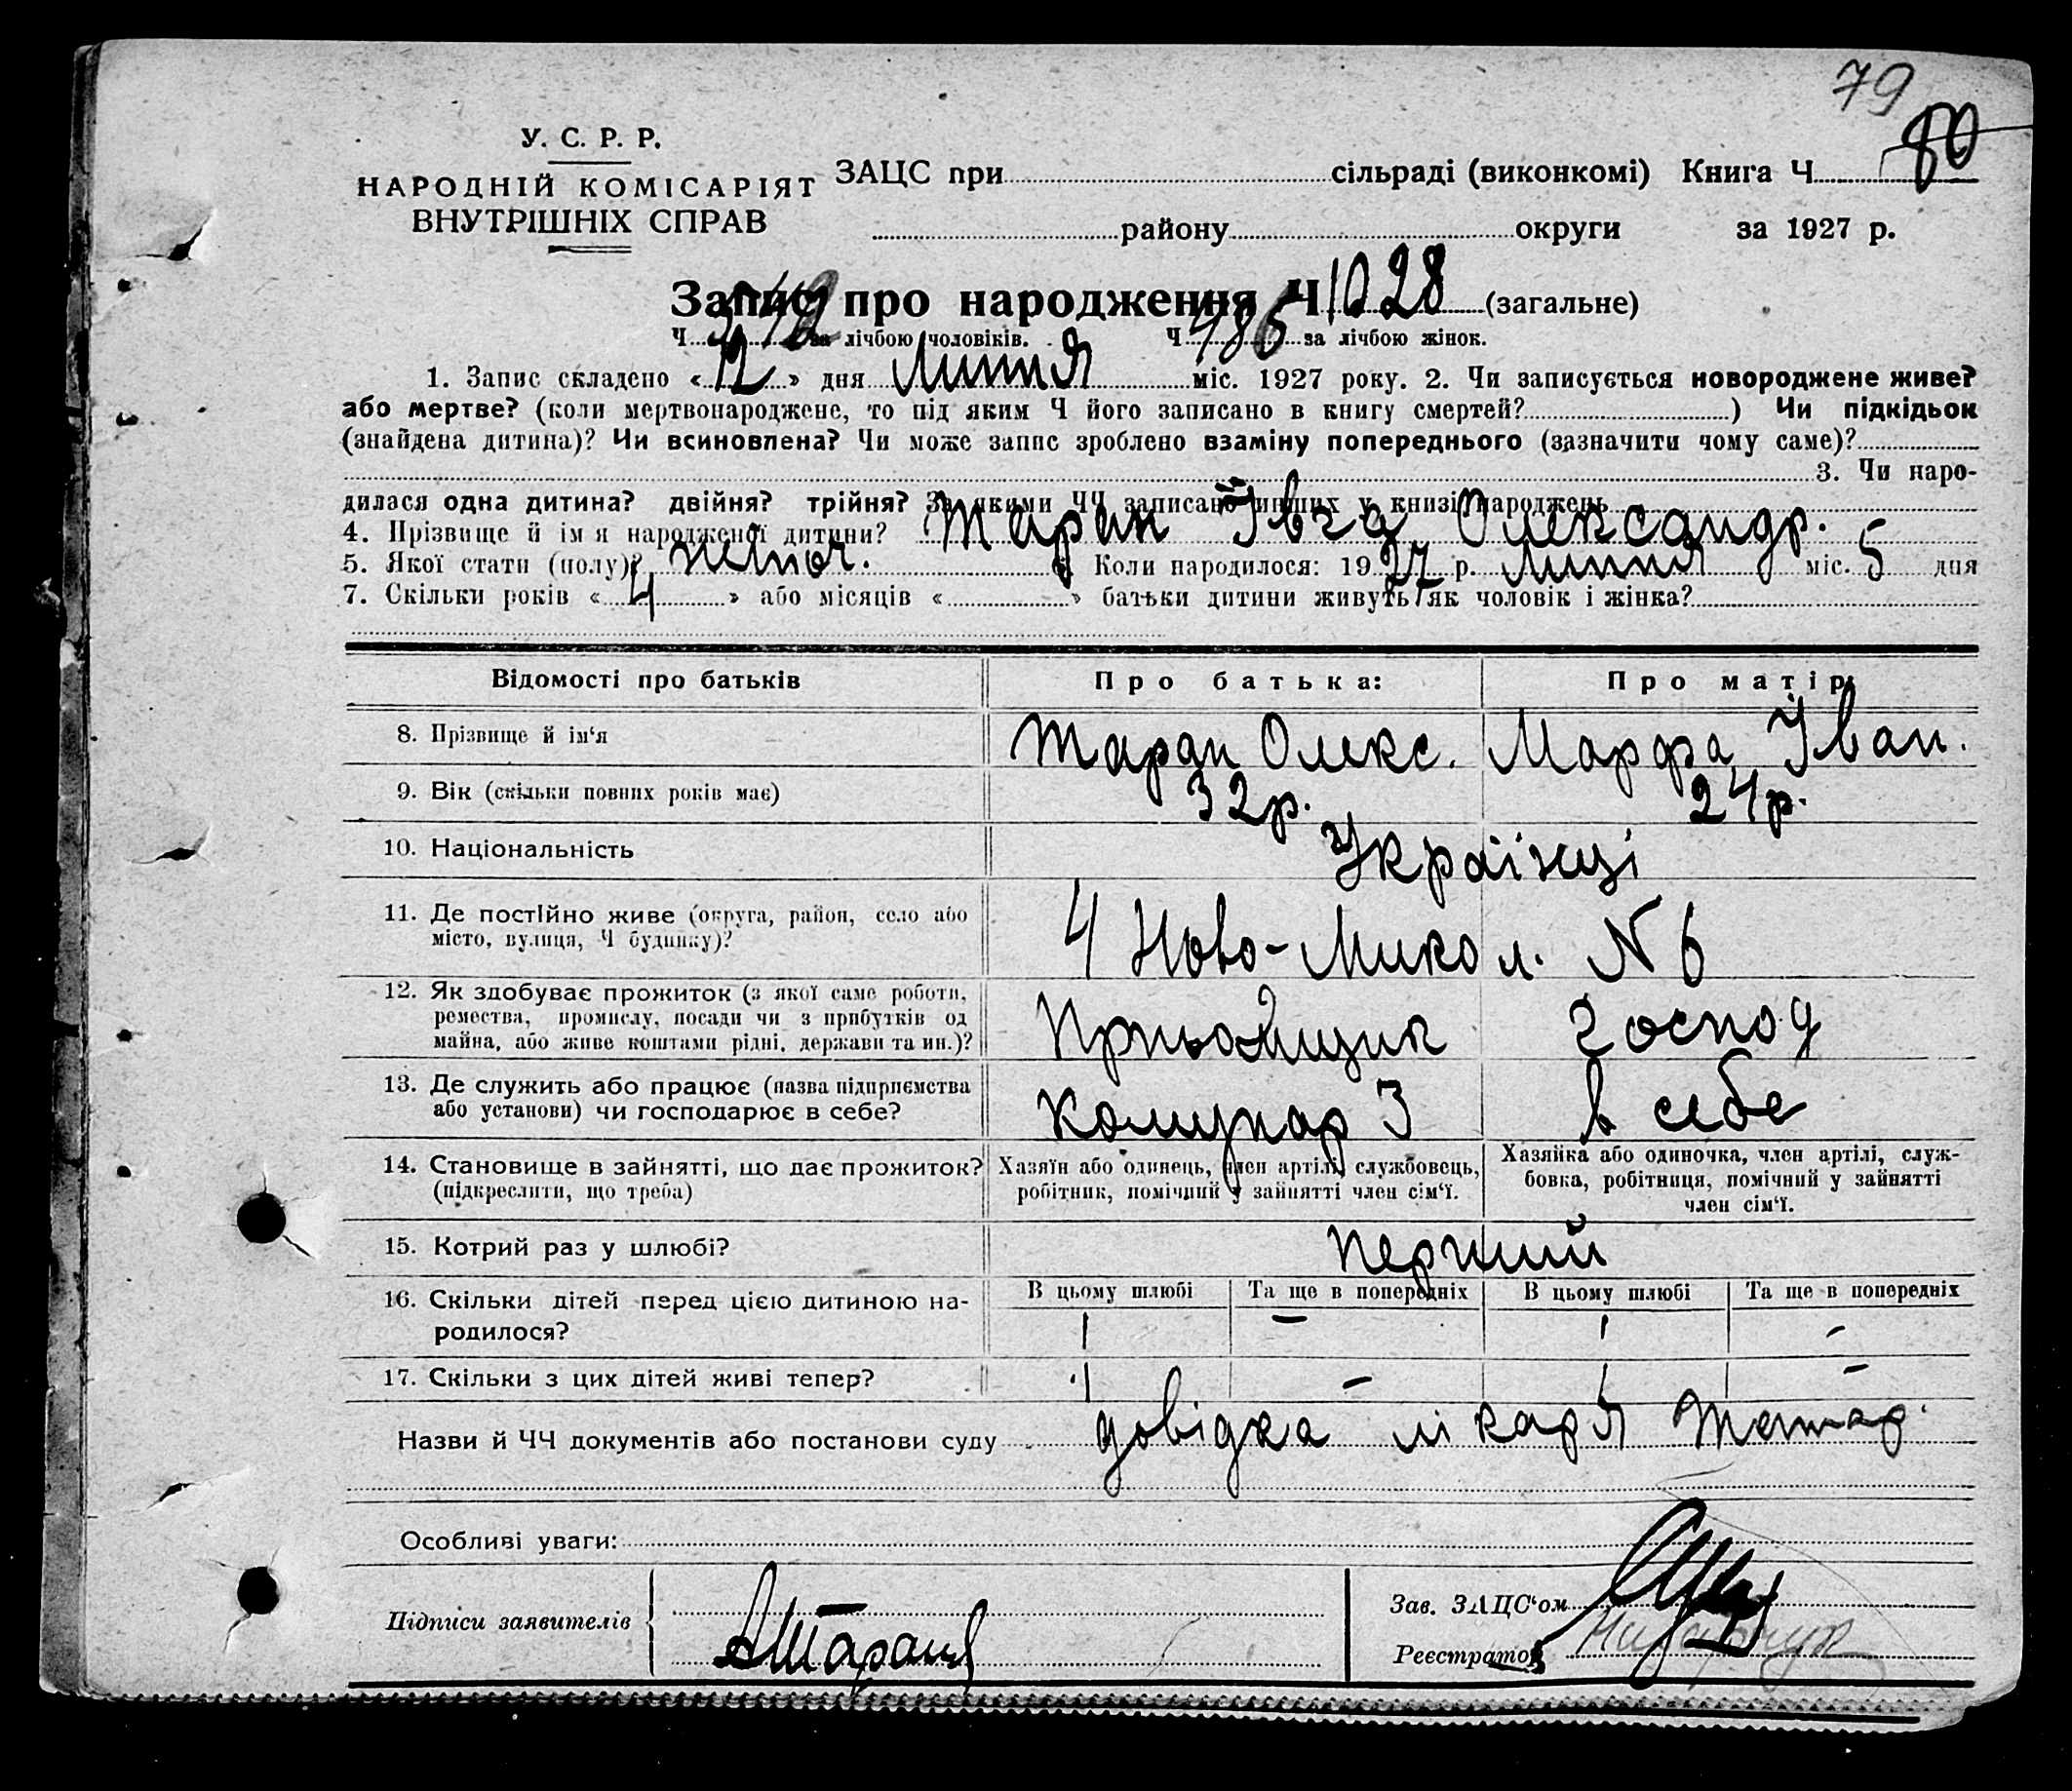 79
80
У. С. Р. Р.
НАРОДНІЙ КОМІСАРІЯТ
ВНУТРІШНІХ СПРАВ
ЗАЦС при сільраді (виконкомі) Книга Ч
району округи за 1927 р.
Запис про народження Ч 1028 (загальне)
Ч за лічбою чоловіків. Ч 486 за лічбою жінок.
1. Запис складено « 12 » дня Липня міс. 1927 року. 2. Чи записується новороджене живе?
або мертве? (коли мертвонароджене, то під яким Ч його записано в книгу смертей? ) Чи підкідьок
(знайдена дитина)? Чи всиновлена? Чи може запис зроблено взаміну попереднього (зазначити чому саме)?
3. Чи наро-
дилася одна дитина? двійня? трійня? За якими ЧЧ записано инших у книзі народжень
4. Прізвище й ім я народженої дитини? Таран Івга Олександр.
5. Якої стати (полу)? жіноч. 6 Коли народилося: 1927 р. Липня міс. 5 дня
7. Скільки років « 4 » або місяців « » батьки дитини живуть як чоловік і жінка?
Відомості про батьків Про батька: Про матір:
8. Прізвище й ім‘я Таран Олекс. Марфа Іван.
9. Вік (скільки повних років має) 32 р. 24 р.
10. Національність Українці
11. Де постійно живе (округа, район, село або
місто, вулиця, Ч будинку)? 4 Ново-Микол. N 6
12. Як здобуває прожиток (з якої саме роботи,
ремества, промислу, посади чи з прибутків од
майна, або живе коштами рідні, держави та ин.)? Прийомщик господ
13. Де служить або працює (назва підприємства
або установи) чи господарює в себе? Комунар З в себе
14. Становище в зайнятті, що дає прожиток?
(підкреслити, що треба)
Хазяїн або одинець, член артілі, службовець,
робітник, помічний у зайнятті член сім‘ї.
Хазяйка або одиночка, член артілі, служ-
бовка, робітниця, помічний у зайнятті
член сім‘ї.
15. Котрий раз у шлюбі? перший
16. Скільки дітей перед цією дитиною на-
родилося?
В цьому шлюбі Та ще в попередніх В цьому шлюбі Та ще в попередніх
1 – 1 –
17. Скільки з цих дітей живі тепер? 1 – 1 –
Назви й ЧЧ документів або постанови суду довідка лікаря
Особливі уваги:
Підписи заявителів А Таран
Зав. ЗАЦС‘ом
Реєстратор